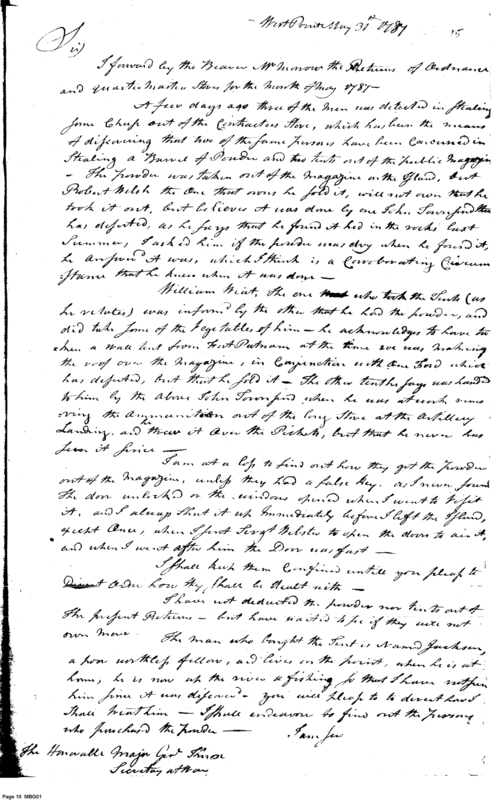 West Point May 31st 1787
15
Sir,
I forward by the Bearer Mr Morrow the Returns of Ordnance
and quarter Master Stores for the Month of May 1787 -
A few days ago three of the Men was detected in Stealing
some Cheap out of the Contractors Store, which has been the means
of discovering that two of the same persons have been Concerned in
Stealing a Barrel of Powder and two tents out of the public Magazin
- The powder was taken out of the Magazine on the Island, but
Robert Welsh the One that owns he sold it, will not own that he
took it out, but believes it was done by one John Townsend who
has deserted, as he says that he found it hid in the rocks last
Summer, I asked him if the powder was dry when he found it,
he answerd it was, which I think is a Corroborating Circum
stance that he knew when it was done -
William Weir, the one who took the Tents (as
he relates) was informd by the other that he had the powder, and
did take some of the Vegetables of him - he acknowledges to have ta
ken a wall tent from Fort Putnam at the time we was making
the roof over the Magazine, in Conjunction with One Ford which
has deserted, but that he sold it - The other tent he says was handed
to him by the above John Townsend when he was at work remo
ving the Ammunition out of the long Store at the Artillery
Landing, and he threw it over the Pickets, but that he never has
seen it since -
I am at a loss to find out how they got the Powder
out of the Magazine, unless they had a false key. as I never found
the door unlocked or the windows opened when I went to visit
it, and I always Shut it up immediately before I left the Island,
except Once, when I sent Sergt Webster to open the doors to air it
and when I went after him the Door was fast -
I shall keep them Confined untill you please to
Order how they shall be dealt with -
I have not deducted the powder nor tents out of
the present Returns - but have waited to see if they will not
own more. The man who bought the Tent is Named Jackson,
a poor worthless fellow, and lives on the point, when he is at
home, he is now up the river a fishing, so that I have not seen
him since it was discoverd - you will please to to direct how I
shall treat him - I shall endeavor to find out the persons
who purchased the powder - I am Sir
The Honorable Major Genl Knox
Secretary at War
Page 10 MBG01